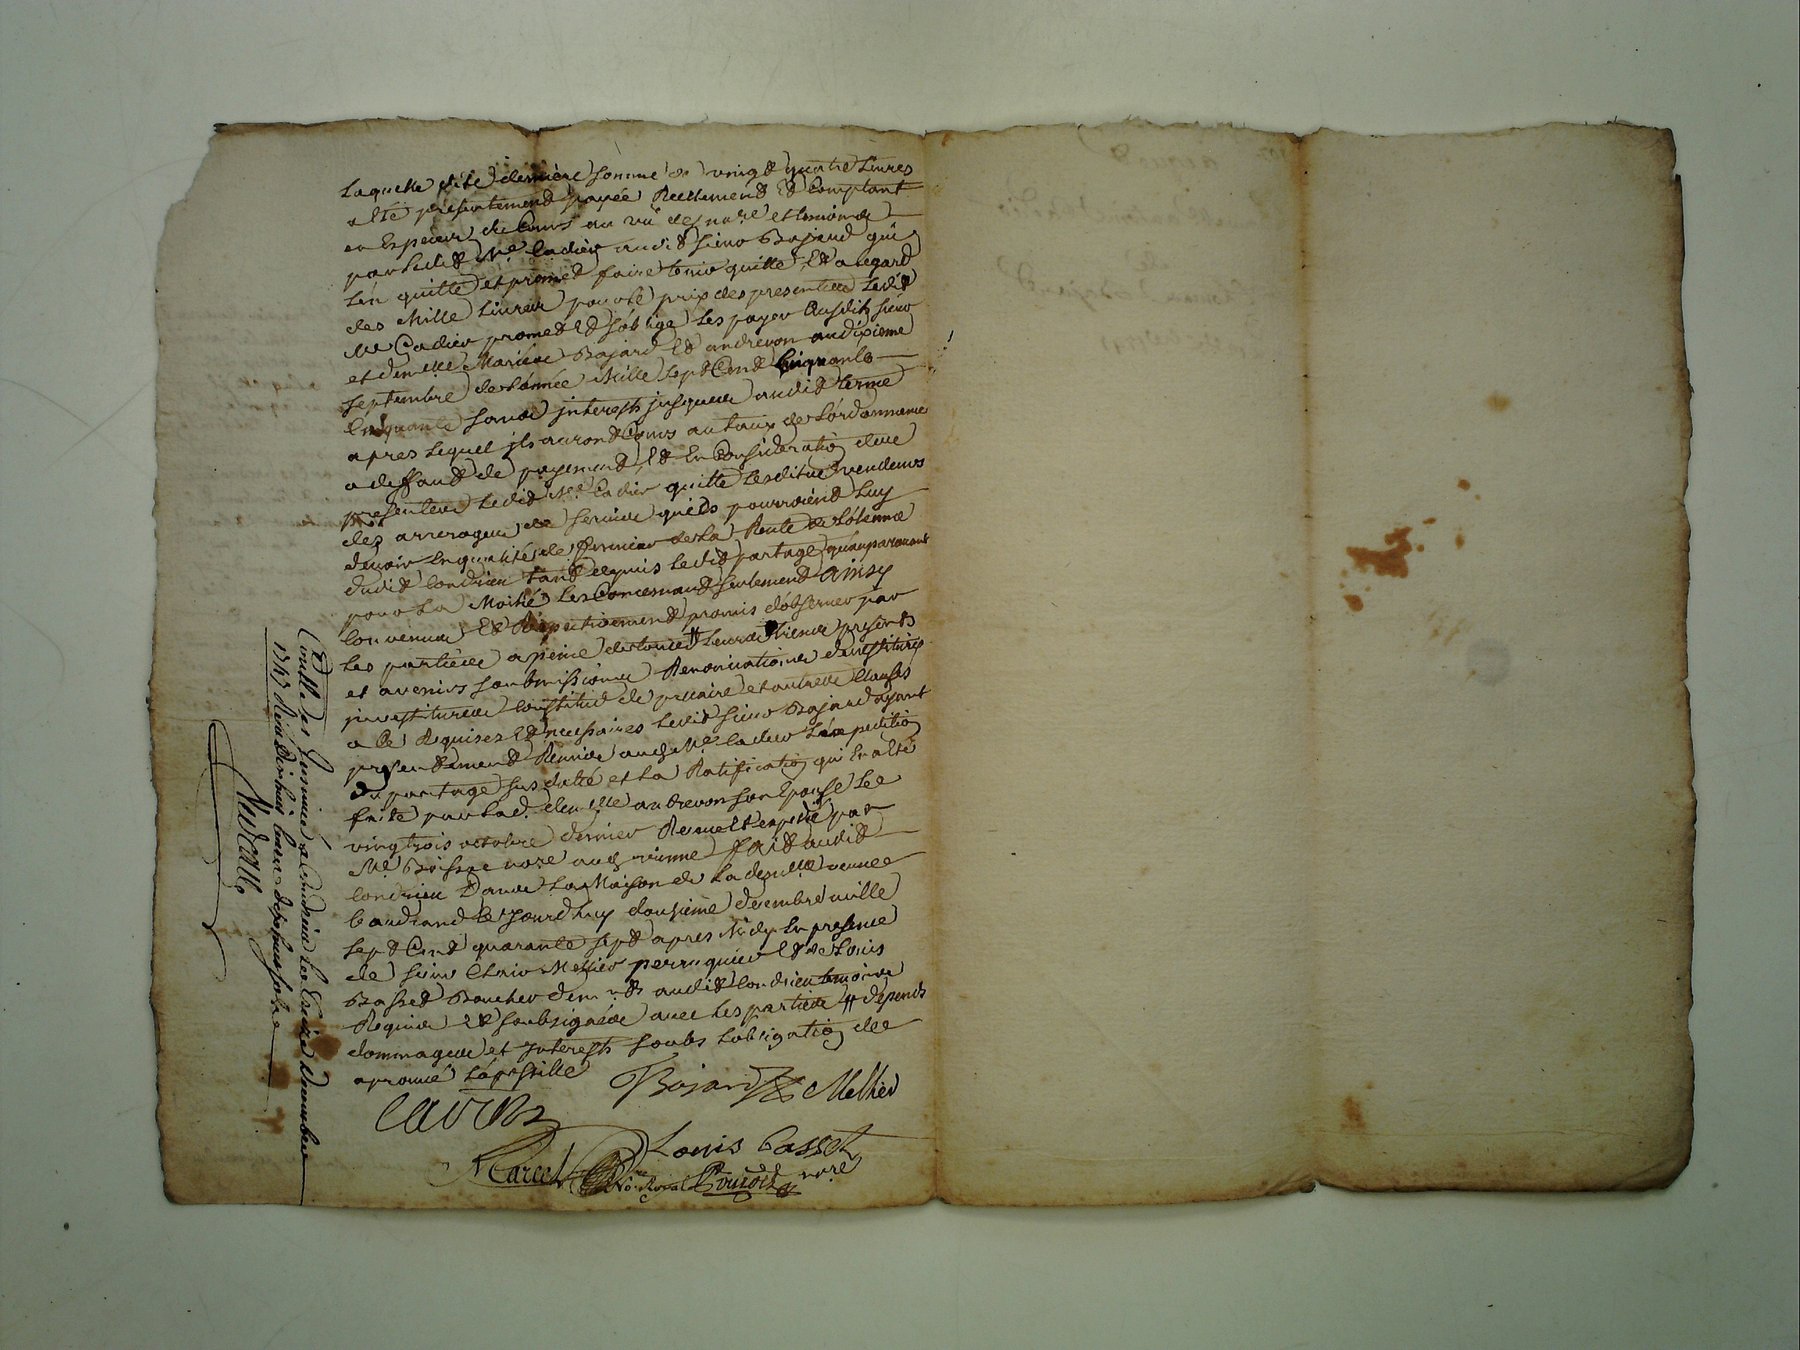 Laquelle dite derniere somme de vingt quatre Livres
a été presentement payée Reellement Et Comptant
en Especes de Cours au vû des no.re et temoins
par ledit Me Cadier audit sieur Bajard qui
L'en quitte et promet faire tenir quitte, Et a legard
des Mille Livres pour le prix des presentes Ledit
Me Cadier promet Et s'oblige les payer Ausdits sieur
et dem.lle Mariés Bajard Et andrevon au dixieme
septembre de L'année Mille sept Cent Cinquante
Cinquante sans interests jusques audit terme
apres Lequel ils auront Cours au taux de L'ordonnance
a deffaut de payement, Et En Consideration des
presentes Ledit Me Cadier quitte Lesdits vendeurs
des arrerages de servis quils pourroient Luy
devoir En qualité de fermier de La Rente de
dudit Condrieu tant depuis Ledit partage qu'auparavant
pour La Moitié Les Concernant seulement Ainsy
Convenu Et Respectivement promis d'observer par
Les parties a peine de tous # Leurs Biens presents
et avenirs soubmissions Renonciations devestitures
investitures Constitut de precaire et autres Clauses
a Ce Requises Et necessaires Ledit sieur Bajard ayant
presentement Remis audit Me Cadier L'expedition
du partage sus datté et La Ratification qui En a été
faite par lad. dem.lle andrevon son Epouse Le
vingt trois octobre dernier Reçue Et expedié par
Me Boisse no.re audit vienne fait audit
Condrieu Dans La Maison de La dem.lle veuve
Baudrand Ce jourd'huy douzieme decembre mille
sept Cent quarante sept apres Midy En presence
de sieur Clair Mellier perruquier Et de Louis
Basset Boucher dem.nts audit Condrieu temoins
Requis Et soubsignés avec Les parties # depends
dommages et Interests soubs L'obligation de
aprouvé L'apostille
Bajard Mellier
Cadier
Louis Basset
Marcel No.re Royal no.re
Contrôlé des Insinué a Condrieu Le treize Decembre
1747 Reçu Dixhuit Livres